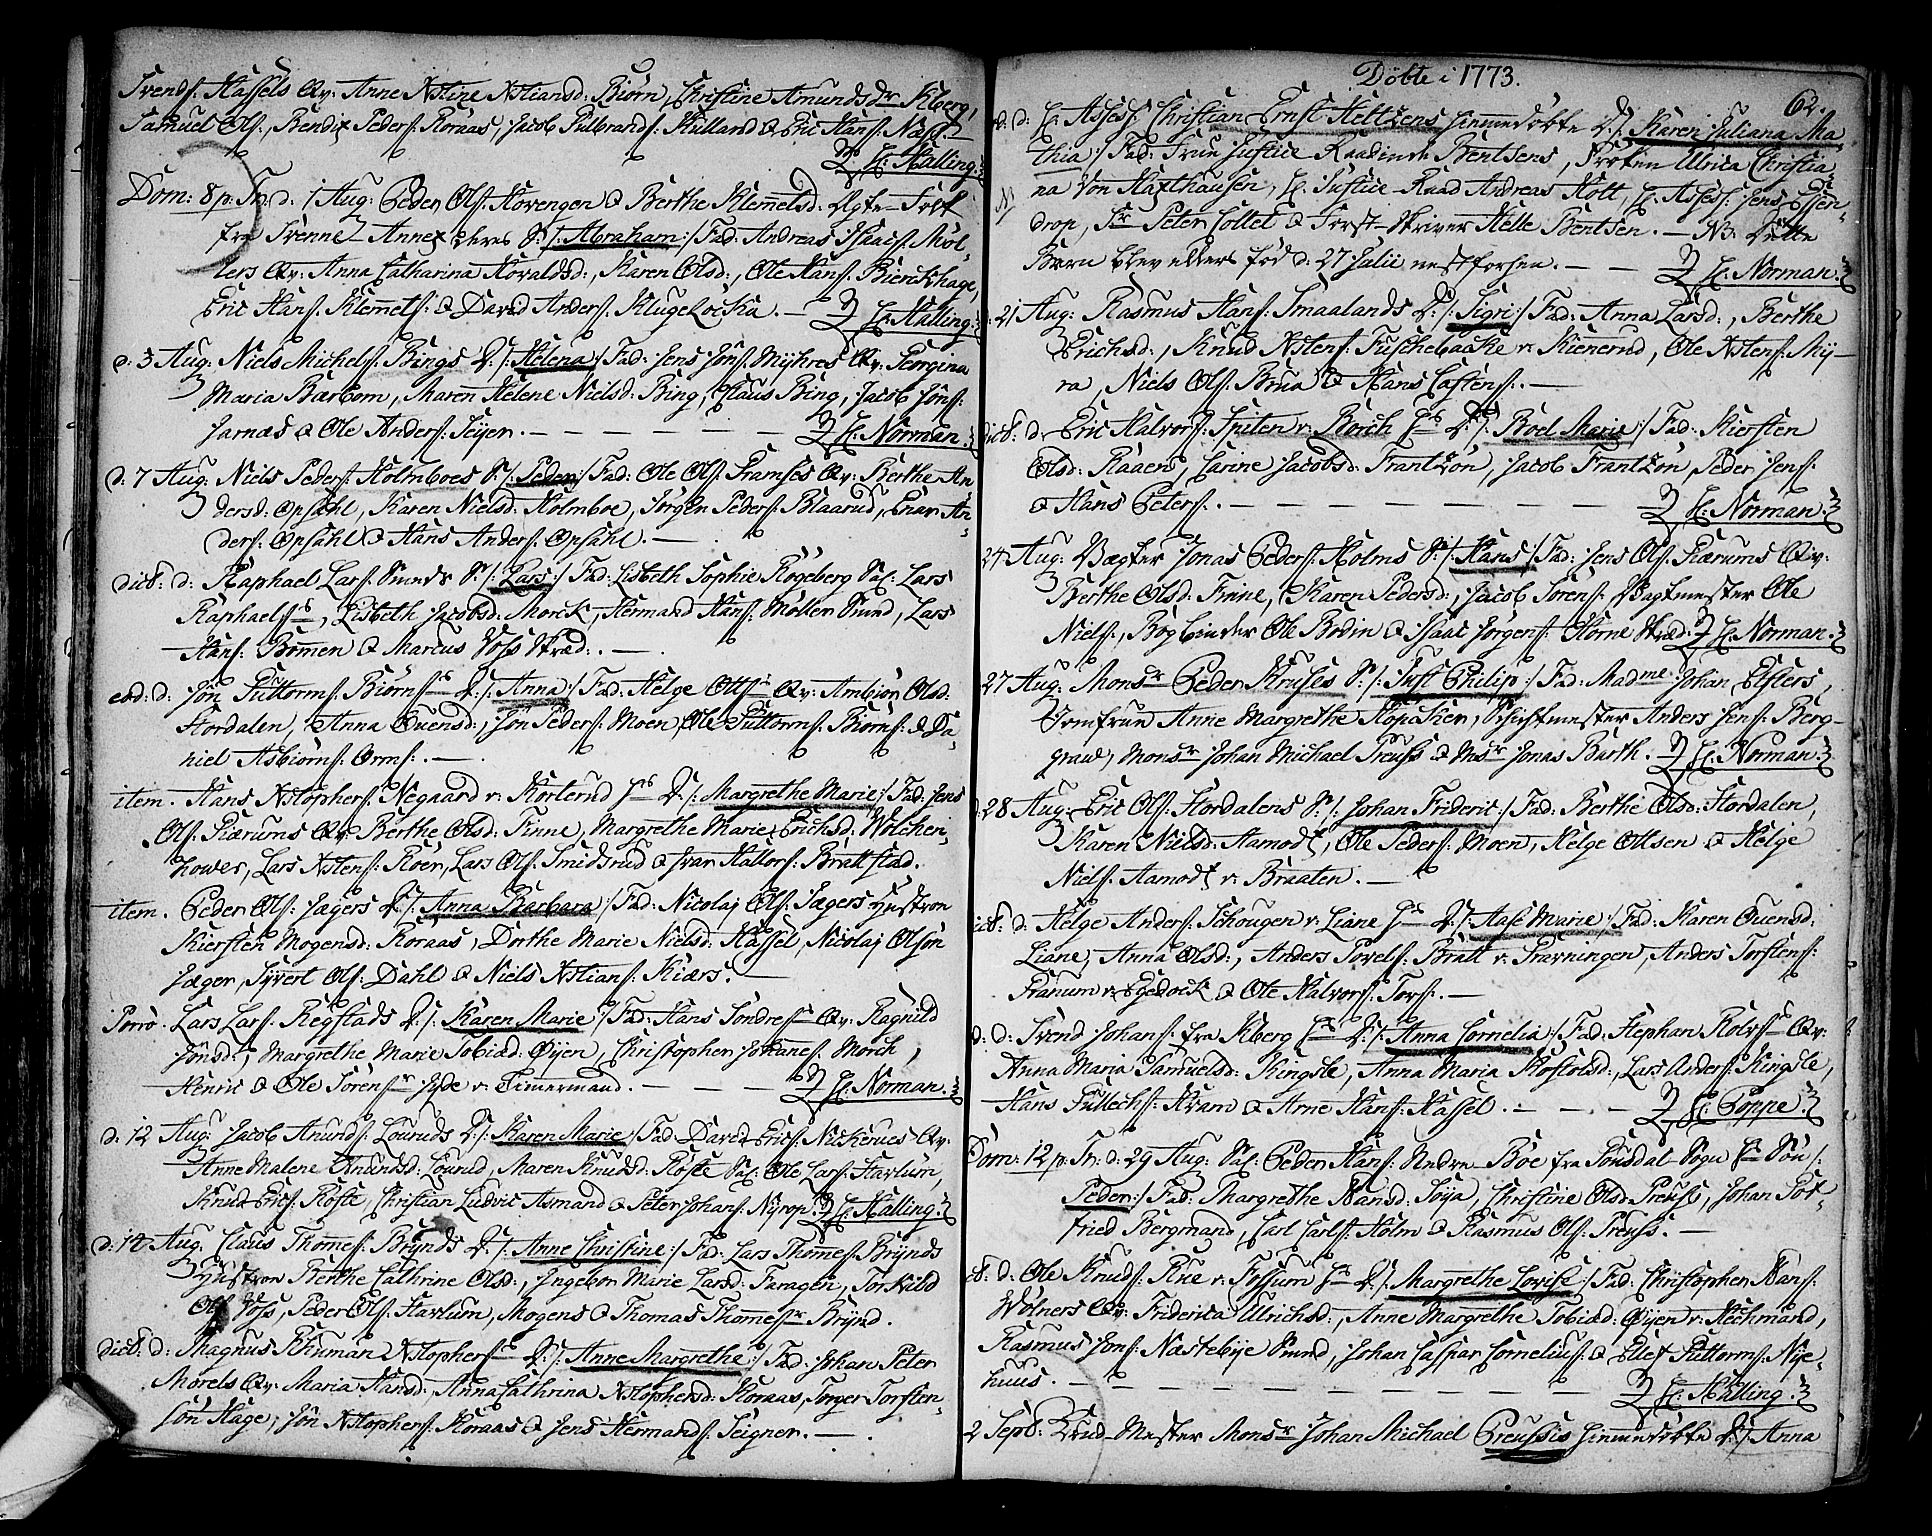 Svends: Hassels Qv: Anne Xstine Xstiansd: Biørn, Christine Amundsdr Kberg,
Samuel Ols:, Bendix Peders: Koraas, Jacob Gulbrands: Hulland & Eric Hans: Næss.
H: Halling.
Dom: 8 p. Tr. d: 1 Aug: Peder Ols: Hovengen & Berthe Klemmetsd: Ægte-Folk
fra Svenne-Annex deres S: /: Abraham :/ Fad: Andreas Isaacs: Møl-
lers Qv: Anna Catharina Hovaldsd:, Karen Olsd:, Ole Hans: Bierckhage,
Eric Hans: Klemmets: & David Anders: Klugelocka. — H: Halling.
d. 3 Aug: Niels Michels: Bings D: /: Helena :/ Fad: Jens Jøns: Myhres Qv: Georgina
Maria Barbom, Maren Helene Nielsd: Bing, Claus Bing, Jacob Jøns:
Jarnæs & Ole Anders: Seyer. — — — H: Norman.
d: 7 Aug: Niels Peders: Holmboes S: /: Peder :/ Fad: Ole Ols: Gamses Qv: Berthe An-
dersd: Opsahl, Karen Nielsd: Holmboe, Jørgen Peders: Blaarud, Enar An-
ders: Opsahl & Hans Anders: Opsahl. —
dicto d: Raphael Lars: Smeds S: /: Lars :/ Fad: Lisbeth Sophie Røgeberg Sal: Lars
Raphaels:, Lisbeth Jacobsd: Morck, Hermand Hans: Møller Smed, Lars
Hans: Bømen & Marcus Voss Skræd:. —
eod: d: Jøn Guttorms: Biørns: D: /: Anna :/ Fad: Helge Otts: Qv: Ambiør Olsd:
Hordalen, Anna Evensd:, Jøn Peders: Moen, Ole Guttorms: Biørns: & Da-
niel Asbiørns: Orms:. —
item. Hans Xstophers: Negaard v: Korterud Hs D: /: Margrethe Marie :/ Fad: Jens
Ols: Kiærums Qv: Berthe Olsd: Finne, Margrethe Marie Erichsd: Wolchen-
hower, Lars Xstens: Roer, Lars Ols: Smidsrud & Ivar Hallors: Brattstad.
item. Peder Ols: Jægers D: /: Anna Barbara :/ Fad: Nicolaj Ols: Jægers Hustroe
Kiersten Mogensd: Koraas, Dorthe Marie Nielsd: Hassel, Nicolaj Olsøn
Jæger, Syvert Ols: Dahl & Niels Xstians: Kiærs. —
Porro. Lars Lars: Regstads D: /: Karen Marie :/ Fad: Hans Sondres: Qv: Ragnild
Jønsd:, Margrethe Marie Tobiæd: Øyen, Christopher Johanes: Morch,
Henric & Ole Sørens: Hyde v: Timermænd. — — H: Norman.
d: 12 Aug: Jacob Anunds: Louruds D: /: Karen Marie :/ Fad: David Erics: Nickerues Qv:
Anne Malene Anundsd: Lourud, Maren Knudsd: Foste Sal: Ole Lars: Harlum,
Knud Erics: Foste, Christian Ludvic Asmand & Peter Johans: Nyrop. H: Halling.
d: 14 Aug. Claus Thomes: Brynds D: /: Anne Christine :/ Fad: Lars Thomes: Brynds
Hustroe Berthe Cathrine Olsd:, Ingebor Marie Larsd: Faragen, Torkild
Ols: Voss, Peder Ols: Harlum, Mogens & Thomas Thomes: Brynd.
dicto d: Magnus Schuman Xstophers: D: /: Anne Margrethe :/ Fad: Johan Peter
Morels Qv: Maria Hansd:, Anna Cathrina Xstophersd: Koraas, Torger Torsten-
søn Hage, Jøn Xstophers: Koraas & Jens Hermands: Teigner. —
Döbte i 1773.
62.
d. d: H: Assess: Christian Ernst Heltzens Hiemmedöbte D: /: Karen Juliana Ma-
thia :/ Fad: Frue Justice-Raadinde Bentsens, Frøken Ulrica Christia-
na von Haxthausen, H: Justice-Raad Andreas Holt, H: Assess: Jens Essen-
drop, Sr Peter Collet & Forst-Skriver Helle Bentsen. — NB: Dette
Barn blev ellers fød d: 27 Julii nestforhen. — — H: Norman.
21 Aug: Rasmus Hans: Smaalands D: /: Sigri :/ Fad: Anna Larsd:, Berthe
Erichsd:, Knud Xstens: Fuschebacke v: Kienerud, Ole Xstens: My-
ra, Niels Ols: Brua & Hans Castens:. —
dicto: d. Eric Halvors: Spiten v: Borch Hs D: /: Boel Marie :/ Fad: Kiersten
Olsd: Raaen, Carine Jacobsd: Frantzøn, Jacob Frantzøn, Peder Jens:
& Hans Peters:. — — — H: Norman.
24 Aug: Vægter Jonas Peders: Holms S: /: Hans :/ Fad: Jens Ols: Kiærums Qv:
Berthe Olsd: Finne, Karen Pedersd:, Jacob Sørens: Vagtmester Ole
Niels:, Bogbinder Ole Bodin & Isaac Jørgens: Horne Skræd: H: Norman.
27 Aug: Monsr Peder Kruses S: /: Just Philip :/ Fad: Madme: Johan Elslers,
Jomfrue Anne Margrethe Hopacker, Schichtmester Anders Jens: Berg-
grav, Monsr Johan Michael Preuss & Msr Jonas Barth. H: Norman.
28 Aug: Eric Ols: Hordalens S: /: Johan Frideric :/ Fad: Berthe Olsd: Hordalen,
Karen Nielsd: Aamodt, Ole Peders: Moen, Helge Ottsen & Helge
Niels: Aamodt v: Braaten. —
dicto: d: Helge Anders: Schougen v: Liane Hs D: /: Aase Marie :/ Fad: Karen Evensd:
Liane, Anna Olsd:, Anders Povels: Bratt v: Gravningen, Anders Torstens:
Granum v: Egedock & Ole Halvors: Tors:. —
d: d: Svend Johans: fra Kberg Hs D: /: Anna Cornelia :/ Fad: Stephan Rolvs: Qv:
Anna Maria Samuelsd: Kingsle, Anna Maria Rostolsd:, Lars Anders: Kingsle,
Hans Gullechs: Kram & Arne Hans: Hassel. — — H: Poppe.
Dom: 12 p. Tr: d: 29 Aug: Sal: Peder Hans: Nedre Böe fra Sansdal-Sogn Hs Søn /:
Peder :/ Fad: Margrethe Hansd: Soya, Christine Olsd: Preuss, Johan Got-
fried Bergmand, Carl Carls: Holm & Rasmus Ols: Preuss. —
d. Ole Knuds: Rue v: Fossum Hs D: /: Margrethe Lovise :/ Fad: Christopher Hans:
Wölners Qv: Friderica Ulrichsd:, Anne Margrethe Tobiæd: Øyen v: Hechmand,
Rasmus Jons: Næstebye Smed, Johan Caspar Cornelius & Ellef Guttorms: Nye-
huus. — — — H: Halling.
2 Septb: Brud-Mester Monsr Johan Michael Preussis Hiemmedöbte D: /: Anna